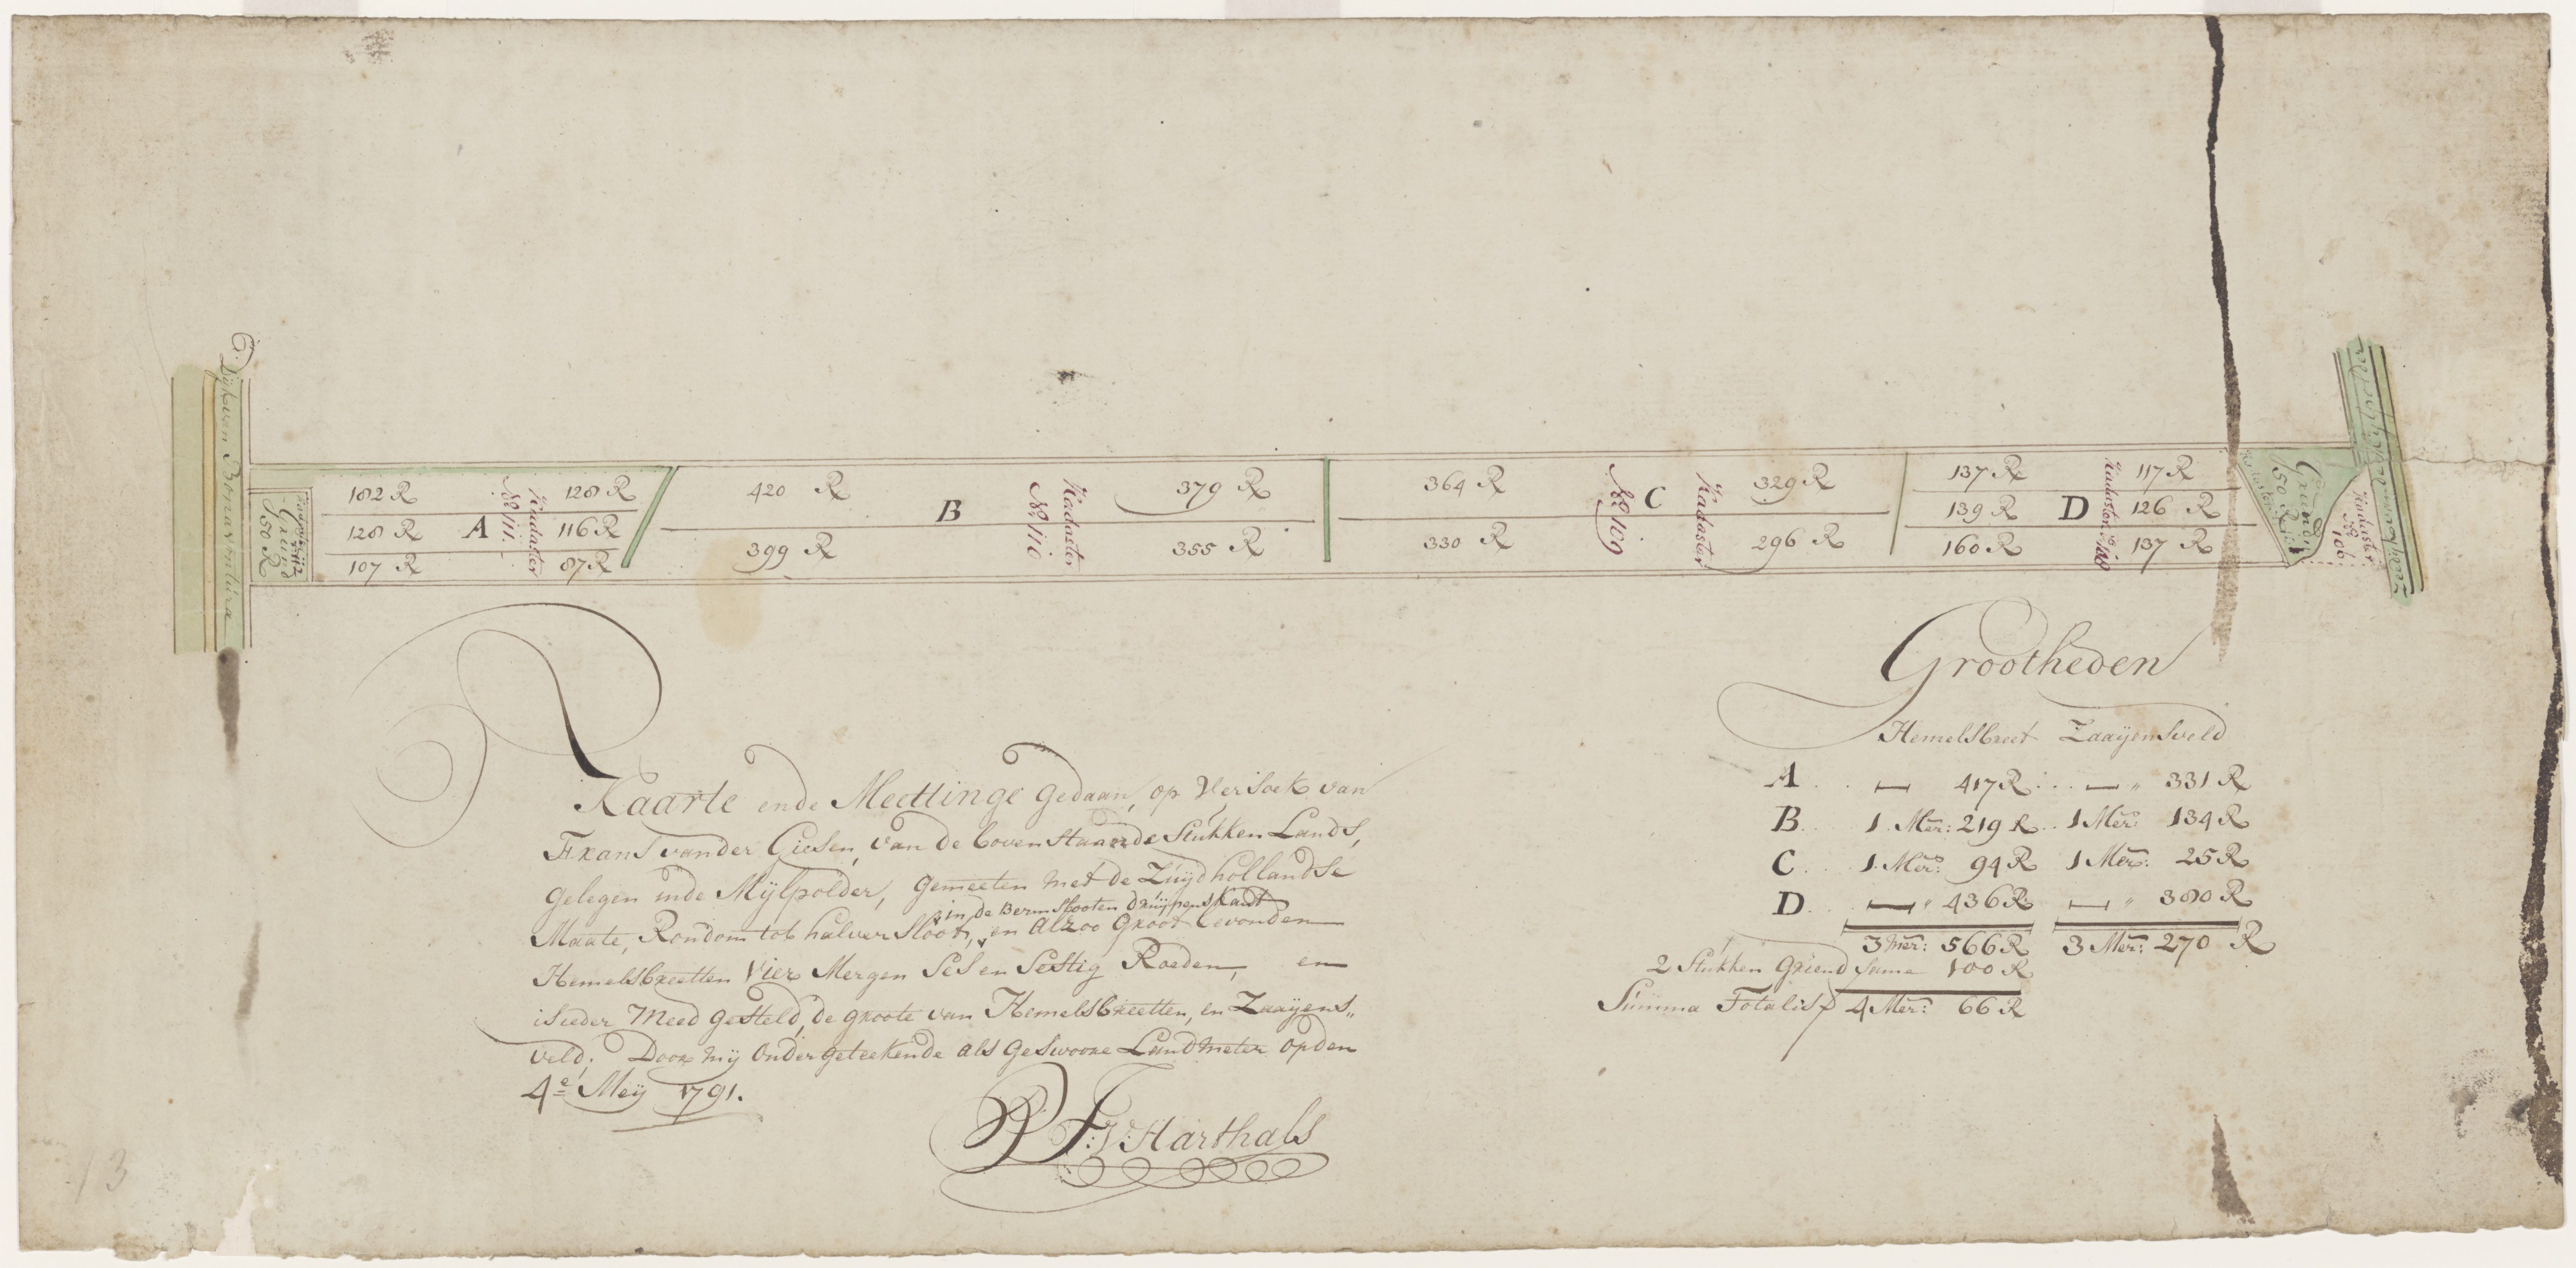 Dÿk van Bonaventura
Kadaster
No 112
Griend
50 R
182 R
128 R
107 R
A
No 111.
Kadaster
128 R
116 R
87 R
420 R
399 R
B
No 110
Kadaster
379 R
355 R
364 R
330 R
No 109
C
Kadaster
329 R
296 R
137 R
139 R
160 R
D
Kadaster No 108
117 R
126 R
137 R
Kadaster
Griend
50 R
Kadaster
No
106
Kaarte ende Meetinge gedaan, op Versoek van
Frans vander Giesen, van de bovenstaande Stukken Lands,
gelegen inde Mÿlpolder, gemeeten met de Zuÿdhollandse
in de Bermslooten druÿpens kant
Maate, Rondom tot halver Sloot, en alzoo Groot bevonden
Hemelsbreetten Vier Mergen Ses en Sestig Roeden, en
is ieder Meed gesteld, de groote van Hemelsbreetten, en Zaaÿens„
veld; Door mÿ Ondergeteekende als Geswoore Landmeter op den
4e Meÿ 1791.
F: V: Harthals
Grootheden
Hemelsbreet Zaaÿensveld
A . . — 417 R . . . — „ 331 R
B . . 1 Mer: 219 R . . 1 Mer: 134 R
C . . 1 Mer: 94 R 1 Mer: 25 R
D . . — „ 436 R — „ 380 R
3 Mer: 566 R 3 Mer: 270 R
2 Stukken Griend same 100 R
Summa Totalis 4 Mer: 66 R
13